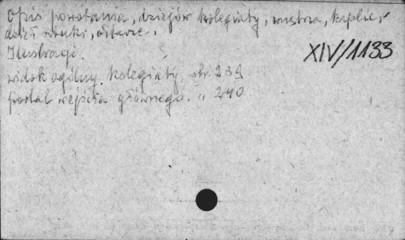 Opis powstania, dziejów kolegiaty, wnętrza, kaplic,
dzieł sztuki, ołtarze.
Ilustracje.
XIV/1133
widok ogólny kolegiaty str. 239
portal wejścia głównego. " 240